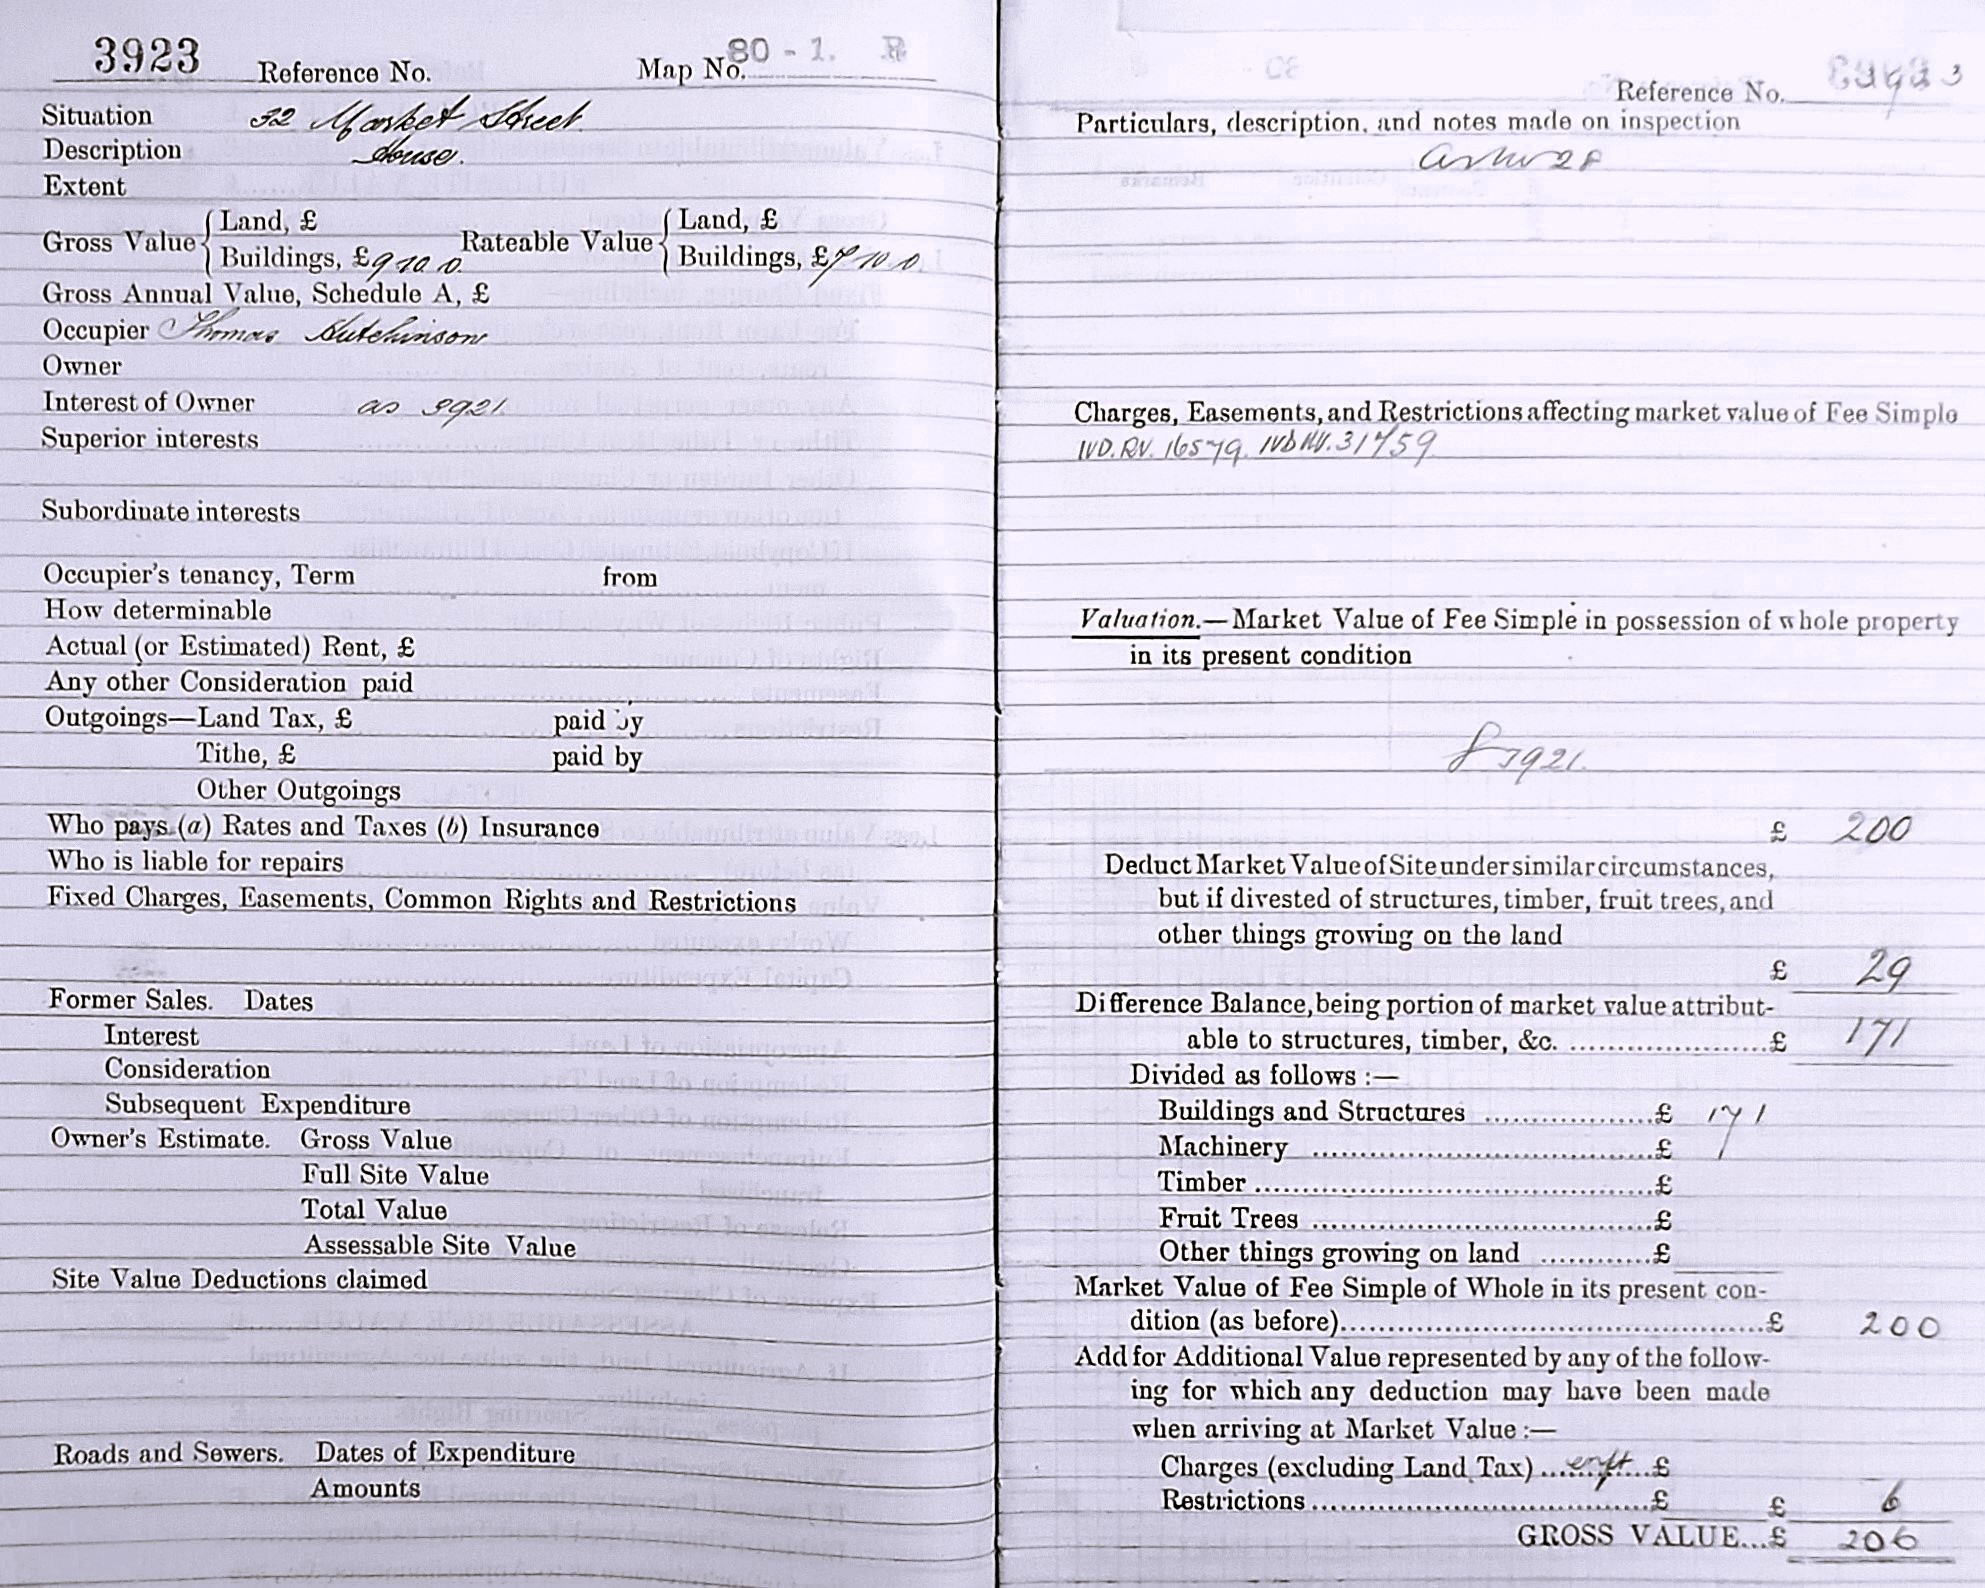 3923 Reference No. Map No. 80 - 1.
Situation 32 Market Street
Description House.
Extent
Gross Value { Land, £
Buildings, £ 9 10 0 Rateable Value { Land, £
Buildings, £ 7 10 0
Gross Annual Value, Schedule A, £
Occupier Thomas Hutchinson
Owner
Interest of Owner as 3921
Superior interests
Subordinate interests
Occupier's tenancy, Term from
How determinable
Actual (or Estimated) Rent, £
Any other Consideration paid
Outgoings—Land Tax, £ paid by
Tithe, £ paid by
Other Outgoings
Who pays (a) Rates and Taxes (b) Insurance
Who is liable for repairs
Fixed Charges, Easements, Common Rights and Restrictions
Former Sales. Dates
Interest
Consideration
Subsequent Expenditure
Owner's Estimate. Gross Value
Full Site Value
Total Value
Assessable Site Value
Site Value Deductions claimed
Roads and Sewers. Dates of Expenditure
Amounts
Reference No. 3923
Particulars, description, and notes made on inspection
Charges, Easements, and Restrictions affecting market value of Fee Simple
IVD. RV. 16579. IVD RV. 31759
Valuation.—Market Value of Fee Simple in possession of whole property
in its present condition
3921.
£ 200
Deduct Market Value of Site under similar circumstances,
but if divested of structures, timber, fruit trees, and
other things growing on the land
£ 29
Difference Balance, being portion of market value attribut-
able to structures, timber, &c. ........................£ 171
Divided as follows :—
Buildings and Structures ....................£ 171
Machinery ........................................£
Timber ...............................................£
Fruit Trees ........................................£
Other things growing on land .............£
Market Value of Fee Simple of Whole in its present con-
dition (as before)...................................................£ 200
Add for Additional Value represented by any of the follow-
ing for which any deduction may have been made
when arriving at Market Value :—
Charges (excluding Land Tax) ...............£
Restrictions ........................................£ £ 6
GROSS VALUE...£ 206